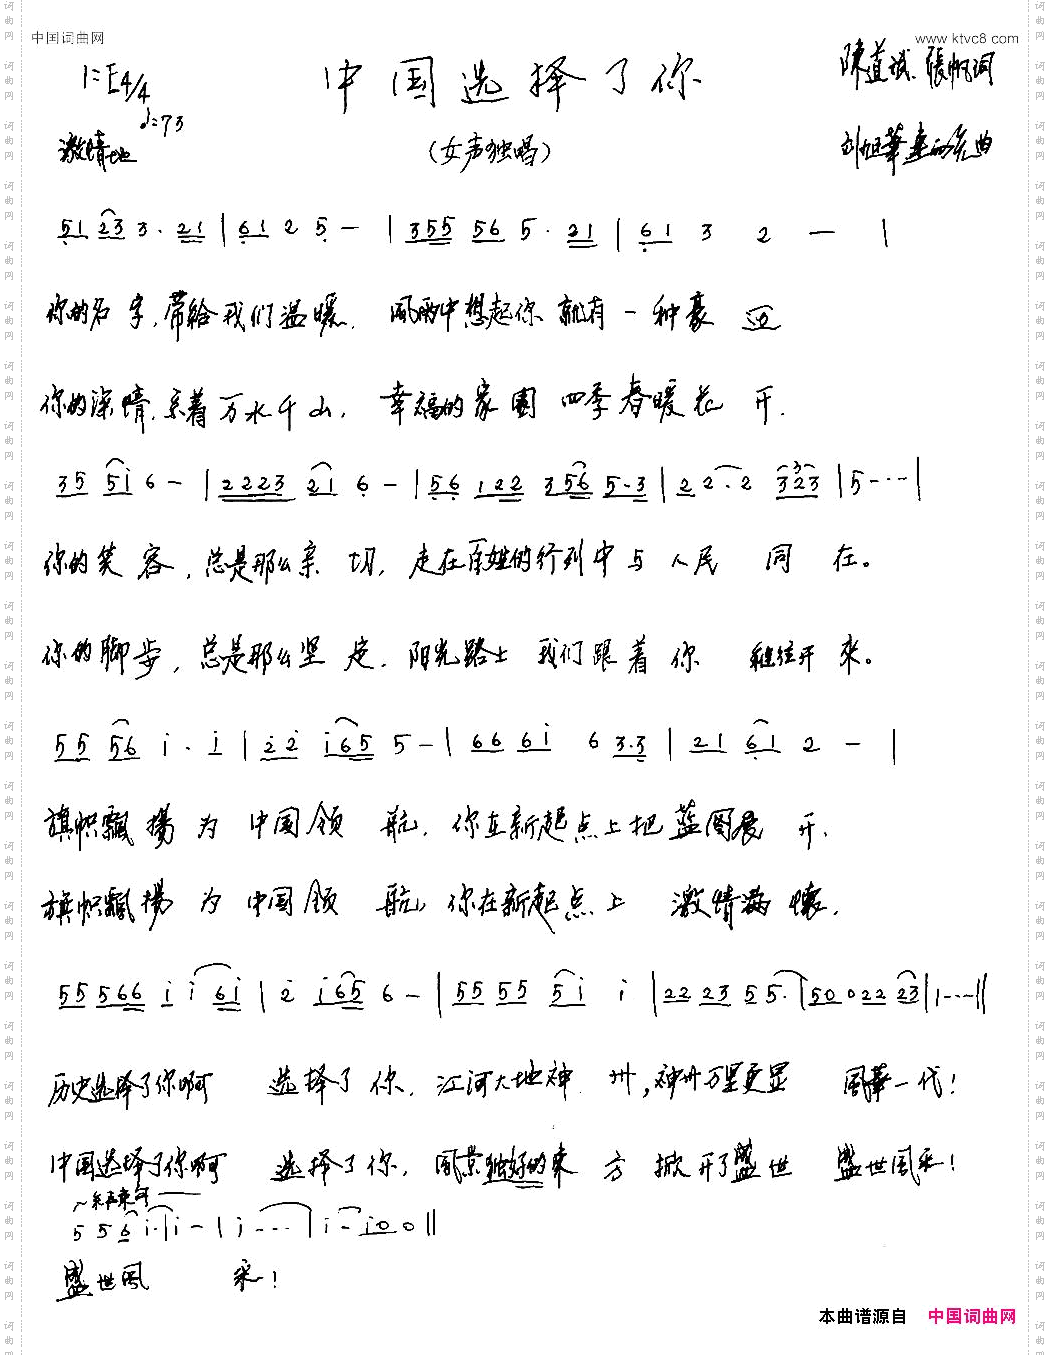 中国词曲网
www.ktvc8.com
1=E4/4
♩=73
中国选择了你
陳道斌、張帆词
激情地
(女声独唱)
51 23 3. 21 | 61 2 5 — | 355 56 5. 21 | 61 3 2 — |
你的名字,带给我们温暖. 风雨中想起你 就有一种豪迈
你的深情.系着万水千山. 幸福的家園 四季春暖花开.
35 5i 6 — | 2223 21 6 — | 56 122 356 5.3 | 22.2 323 | 5--- |
你的笑容,总是那么亲切,走在百姓的行列中与人民同在。
你的脚步,总是那么坚定.阳光路上 我们跟着你 继往开來。
55 56 i. i | 22 i65 5 — | 66 6i 6 3.3 | 21 61 2 — |
旗帜飄揚为中国领航.你在新起点上把蓝图展开.
旗帜飄揚为中国领航,你在新起点上 激情满懷.
55 566 i i 6i | 2 i65 6 — | 55 55 5i i | 22 23 55. | 50 022 23 | 1---||
历史选择了你啊 选择了你.江河大地神州,神州万里更显 風華一代!
中国选择了你啊 选择了你.風景独好的東方掀开了盛世 盛世風采!
5 5 6 i. | i — | i --- | i — i00 ||
盛世風 采!
本曲谱源自 中国词曲网